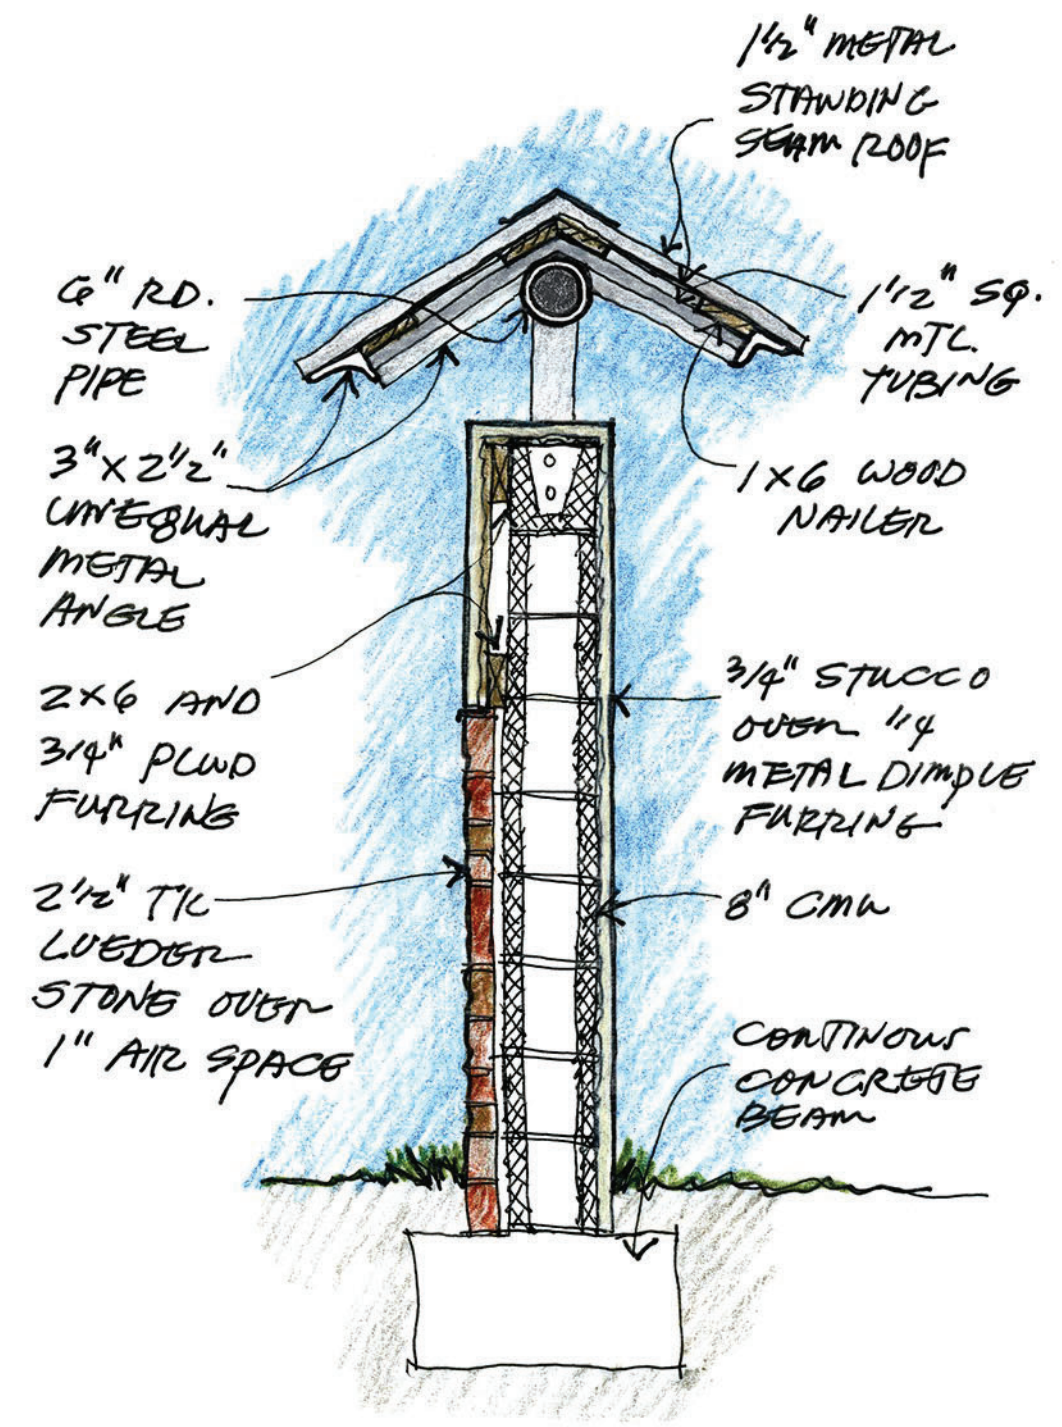 1 1/2" METAL
STANDING
SEAM ROOF
6" RD.
STEEL
PIPE
1 1/2" SQ.
MTL.
TUBING
3" X 2 1/2"
UNEQUAL
METAL
ANGLE
1X6 WOOD
NAILER
2X6 AND
3/4" PLWD
FURRING
3/4" STUCCO
OVER 1/4
METAL DIMPLE
FURRING
2 1/2" TK
LUEDER
STONE OVER
1" AIR SPACE
8" CMU
CONTINOUS
CONCRETE
BEAM